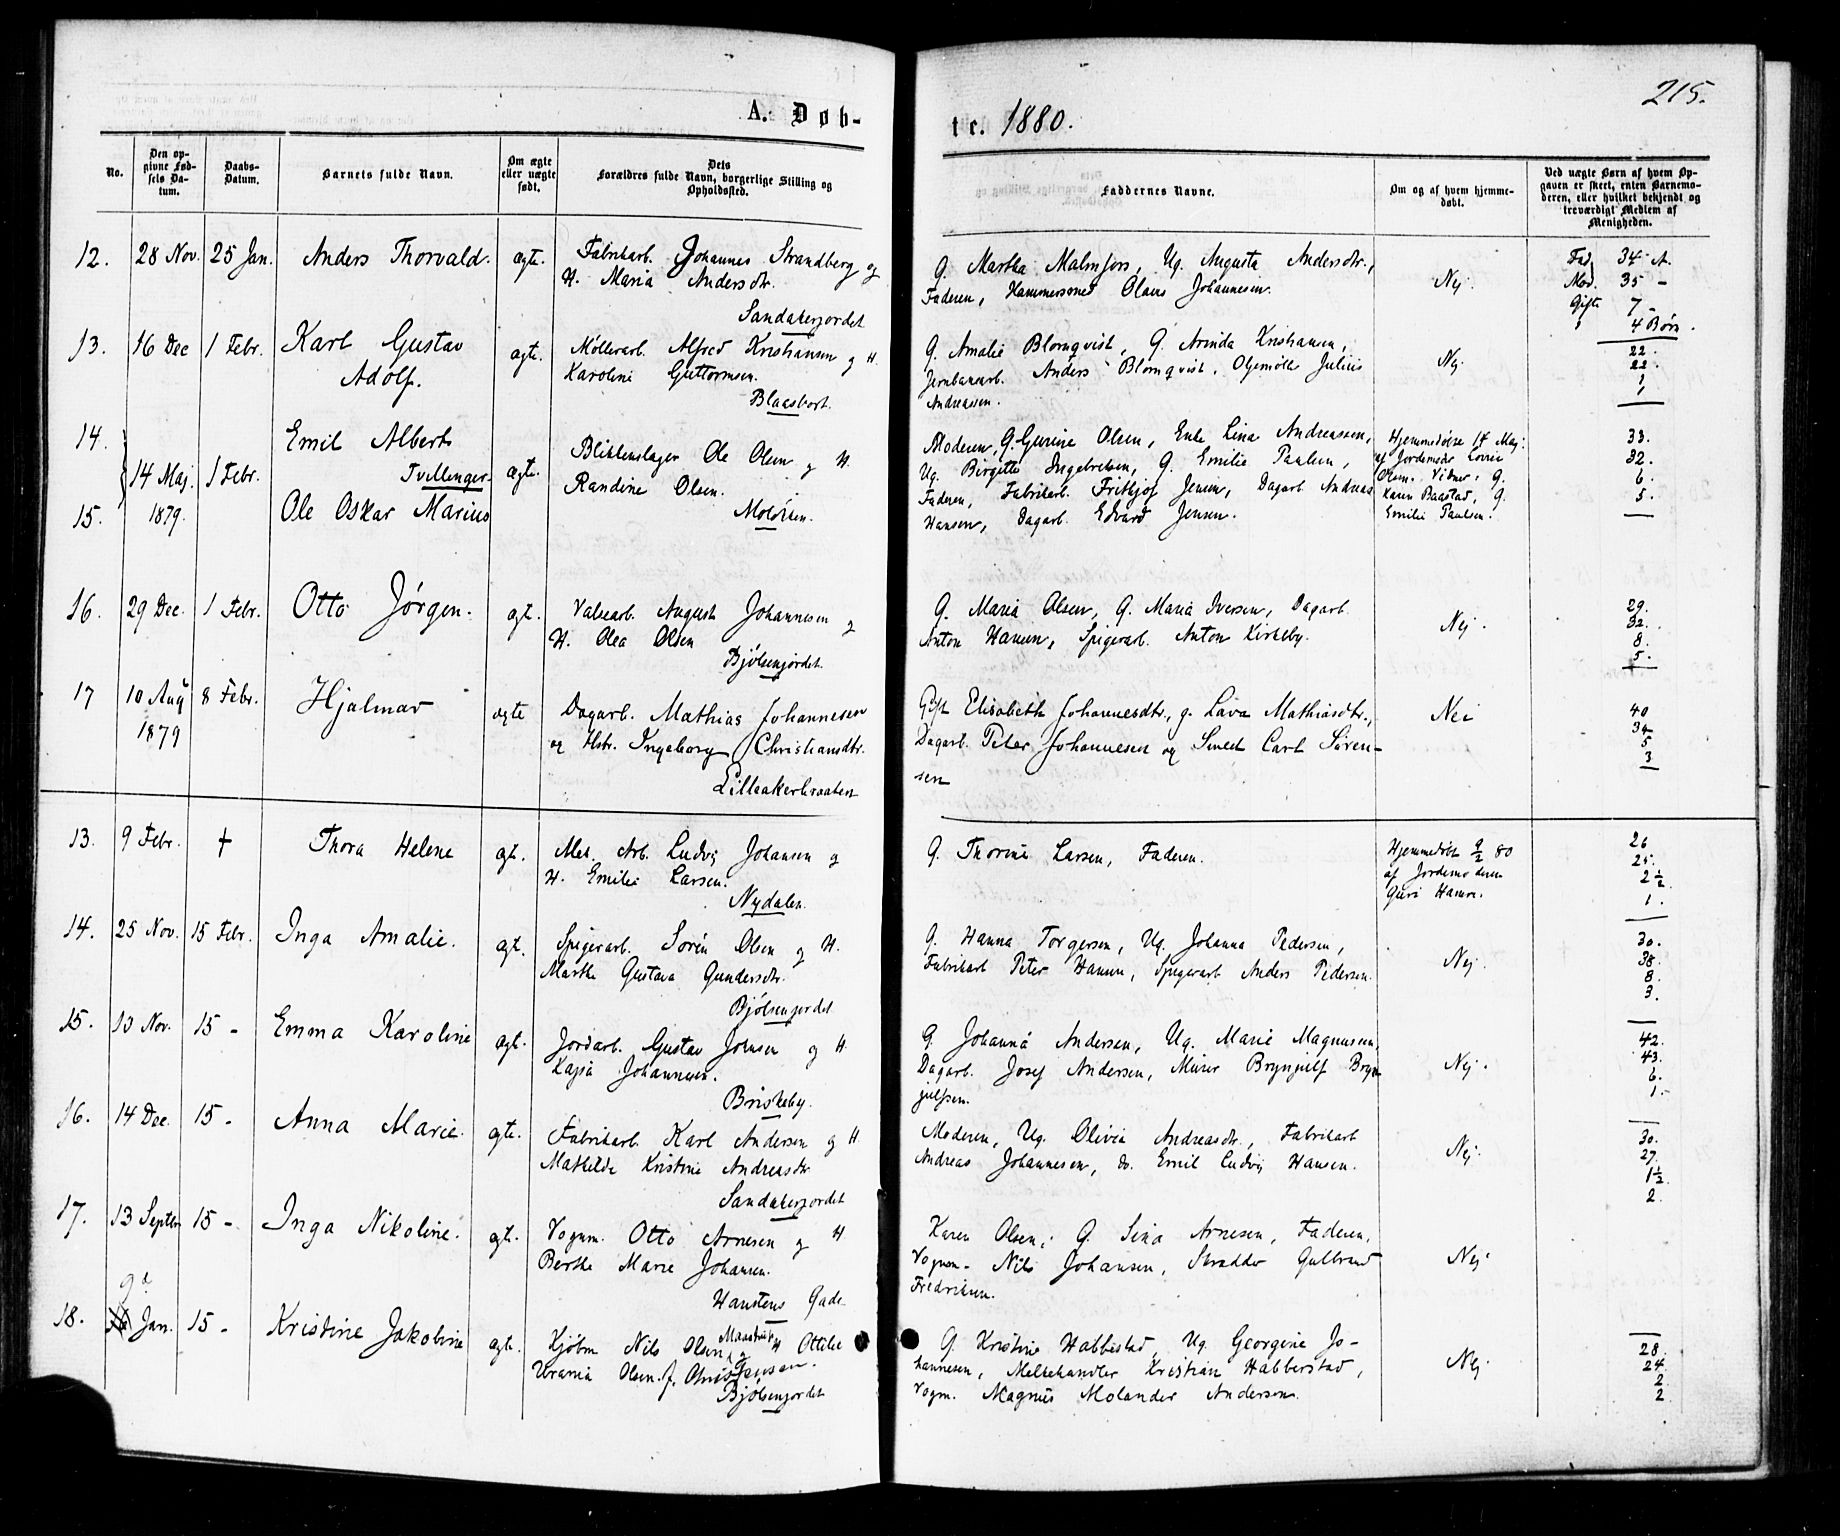 215.
A. Døb-
te. 1880.
No.
Den op-
givne Fød-
sels Da-
tum.
Daabs-
Datum.
Barnets fulde Navn.
Om ægte
eller uægte
født.
Dets
Forældres fulde Navn, borgerlige Stilling og
Opholdssted.
Faddernes Navne.
Om og af hvem hjemme-
døbt.
Ved uægte Børn af hvem Op-
gaven er skeet, enten Barnemo-
deren, eller hvilket bekjendt og
troværdigt Medlem af
Menigheden.
12. 28 Nov. 25 Jan. Anders Thorvald. ægte. Fabrikarb. Johannes Strandberg og
H. Maria Andersdtr.
Sandakerjordet
G. Martha Malmfors, Ug. Augusta Andersdtr.,
Faderen, Hammersmed Olaus Johannesen.
Nej.
Fad. 34 A.
Mod. 35 -
Gift 7 -
4 Børn.
13. 16 Dec 1 Febr. Karl Gustav
Adolf. ægte. Møllerarb. Alfred Kristiansen og H.
Karoline Guttormsen.
Blaasbort.
G. Amalie Blomqvist, G. Arinda Kristiansen,
Jernbanearb. Anders Blomqvist, Oljemølle Julius
Andreassen.
Nej.
22.
22.
1
1
14. Emil Albert
Tvillinger.
14 Maj 1 Febr. ægte.
1879.
15. Ole Oskar Marius
Blikkenslager Ole Olsen og H.
Randine Olsen.
Moløkken.
Moderen, G. Gurine Olsen, Enke Lina Andreassen,
Ug. Birgitte Ingebretsen, G. Emilie Paulsen,
Faderen, Fabrikarb. Frithjof Jensen, Dagarb. Andreas
Hansen, Dagarb. Edvard Jensen.
Hjemmedøbte 14 Maj.
af Jordemoder Lovise
Olsen. Vidner, G.
Karen Baastad, G.
Emilie Paulsen.
33.
32.
6.
5.
16. 29 Dec. 1 Febr. Otto Jørgen. ægt. Valsearb. August Johannesen og
H. Olea Olsen
Bjølsenjordet.
G. Maria Olsen, G. Maria Iversen, Dagarb.
Anton Hansen, Spigerarb. Anton Kirkeby.
Nej.
29.
32.
8.
5.
17 10 Aug 8 Febr. Hjalmar ægte
1879
Dagarb. Mathias Johannesen
og Hstr. Ingeborg Christiansdtr.
Lilleakerbraaten
Gift Elisabeth Johannesdtr., g. Lava Mathiasdtr.,
Dagarb. Peter Johannesen og Smed Carl Søren-
sen
Nei
40
34
5
3
13. 9 Febr. † Thora Helene ægt. Mek. Arb. Ludvig Johansen og
H. Emilie Larsen.
Nydalen.
G. Thorine Larsen, Faderen.
Hjemmedøbt 9/2 80
af Jordemoderen
Guri Hansen.
26
25.
2 1/2
1.
14. 25 Nov. 15 Febr. Inga Amalie. ægt. Spigerarb. Sørén Olsen og H.
Marthe Gustava Gundersdtr.
Bjølsenjordet
G. Hanna Torgersen, Ug. Johanna Pedersen,
Fabrikarb Peter Hansen, Spigerarb Anders Pedersen.
Nej.
30.
38.
8.
3.
15. 13 Nov. 15 - Emma Karoline ægt. Jordarb. Gustav Johnsen og H.
Kajsa Johannesen.
Briskeby.
G. Johanna Andersen, Ug. Marie Magnussen,
Dagarb. Josef Andersen, Murer Brynjulf Bryn-
julfsen.
Nej.
42.
43.
6.
1.
16. 14 Dec. 15 - Anna Marie. ægte. Fabrikarb. Karl Andersen og H.
Mathilde Kristine Andreasdtr
Sandakerjordet
Moderen, Ug. Olivia Andreasdtr., Fabrikarb
Andreas Johannesen, do. Emil Ludvig Hansen.
Nej.
30.
27.
1 1/2.
2.
17. 13 Septbr 15 - Inga Nikoline. ægt. Vognm. Otto Arnesen og H
Berthe Marie Johansen.
Hanstens Gade.
Karen Olsen, G. Lina Arnesen, Faderen,
Vognm. Nils Johansen, Skrædder Gulbrand
Fredriksen.
Nej
18. 9de Jan. 15 - Kristine Jakobine ægte. Kjøbm Nils Olsen Maastad og H Ottilie
Urania Olsen f. Christensen.
Bjølsenjordet
G. Kristine Habberstad, Ug. Georgine Jo-
hannesen, Melkehandler Kristian Habberstad,
Vogm. Magnus Molander Andersen.
Nej.
28.
24.
2
2